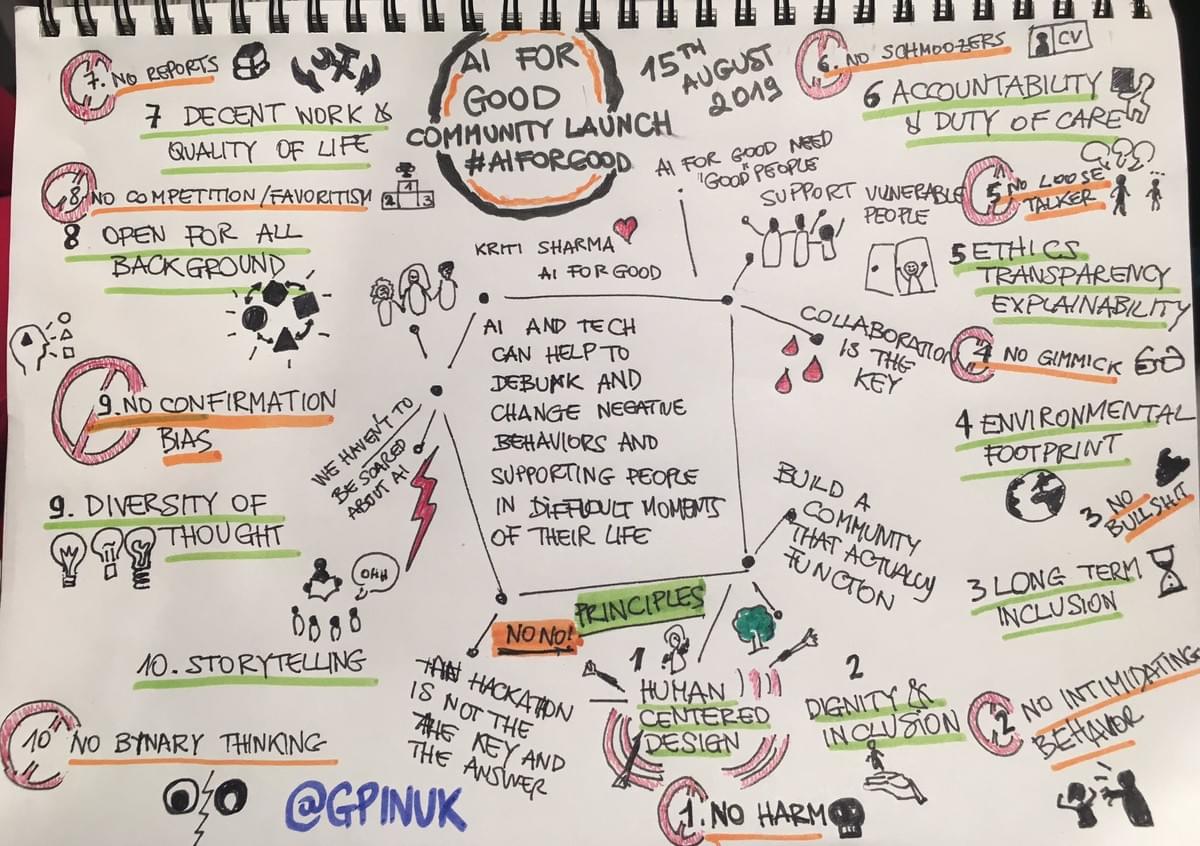 AI FOR
GOOD
COMMUNITY LAUNCH
#AIFORGOOD
15TH
AUGUST
2019
7. NO REPORTS
7 DECENT WORK &
QUALITY OF LIFE
8 NO COMPETITION/FAVORITISM
1
2
3
8 OPEN FOR ALL
BACKGROUND
9. NO CONFIRMATION
BIAS
9. DIVERSITY OF
THOUGHT
OHH
10. STORYTELLING
10 NO BYNARY THINKING
@GPINUK
KRITI SHARMA
AI FOR GOOD
AI FOR GOOD NEED
"GOOD" PEOPLE
SUPPORT VUNERABLE
PEOPLE
COLLABORATION
IS THE
KEY
AI AND TECH
CAN HELP TO
DEBUNK AND
CHANGE NEGATIVE
BEHAVIORS AND
SUPPORTING PEOPLE
IN DIFFICULT MOMENTS
OF THEIR LIFE
WE HAVEN'T TO
BE SCARED
ABOUT AI
BUILD A
COMMUNITY
THAT ACTUALLY
FUNCTION
HACKATION
IS NOT THE
THE KEY AND
THE ANSWER
NO NO!
PRINCIPLES
1
HUMAN
CENTERED
DESIGN
2
DIGNITY &
INCLUSION
1. NO HARM
6. NO SCHMOOZERS
CV
6 ACCOUNTABILITY
& DUTY OF CARE
5 NO LOOSE
TALKER
5 ETHICS
TRANSPARENCY
EXPLAINABILITY
4 NO GIMMICK
4 ENVIRONMENTAL
FOOTPRINT
3 NO
BULLSHIT
3 LONG TERM
INCLUSION
2 NO INTIMIDATING
BEHAVIOR